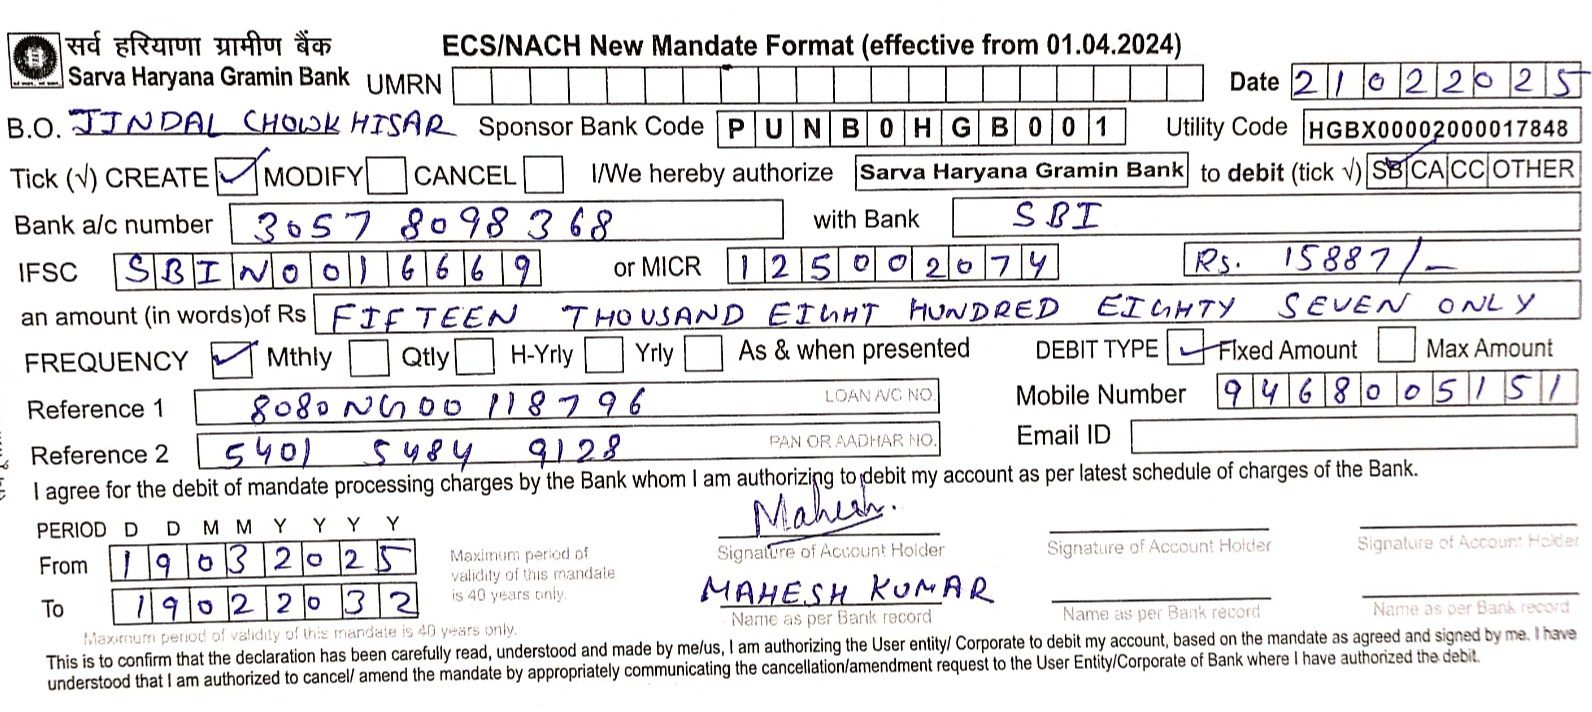 सर्व हरियाणा ग्रामीण बैंक
Sarva Haryana Gramin Bank
ECS/NACH New Mandate Format (effective from 01.04.2024)
UMRN Date 21022025
B.O. JINDAL CHOWK HISAR Sponsor Bank Code PUNB0HGB001 Utility Code HGBX00002000017848
Tick (√) CREATE ✓ MODIFY CANCEL I/We hereby authorize Sarva Haryana Gramin Bank to debit (tick √) SB ✓ CA CC OTHER
Bank a/c number 3057 8098 368 with Bank SBI
IFSC SBIN0016669 or MICR 125002074 Rs. 15887/-
an amount (in words)of Rs FIFTEEN THOUSAND EIGHT HUNDRED EIGHTY SEVEN ONLY
FREQUENCY ✓ Mthly Qtly H-Yrly Yrly As & when presented DEBIT TYPE ✓ FIxed Amount Max Amount
Reference 1 8080NG00118796 LOAN A/C NO. Mobile Number 9468005151
Reference 2 5401 5484 9128 PAN OR AADHAR NO. Email ID
I agree for the debit of mandate processing charges by the Bank whom I am authorizing to debit my account as per latest schedule of charges of the Bank.
PERIOD D D M M Y Y Y Y
From 19032025
To 19022032
Maximum period of
validity of this mandate
is 40 years only.
Maximum period of validity of this mandate is 40 years only.
Mahesh.
Signature of Account Holder Signature of Account Holder Signature of Account Holder
MAHESH KUMAR
Name as per Bank record Name as per Bank record Name as per Bank record
This is to confirm that the declaration has been carefully read, understood and made by me/us, I am authorizing the User entity/ Corporate to debit my account, based on the mandate as agreed and signed by me. I have
understood that I am authorized to cancel/ amend the mandate by appropriately communicating the cancellation/amendment request to the User Entity/Corporate of Bank where I have authorized the debit.